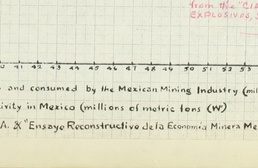 from the "CIA
EXPLOSIVOS, S
41 42 43 44 45 46 47 48 49 50 51 52 53
and consumed by the Mexican Mining Industry (mil
ivity in Mexico (millions of metric tons (W')
A. & "Ensayo Reconstructivo de la Economia Minera Me